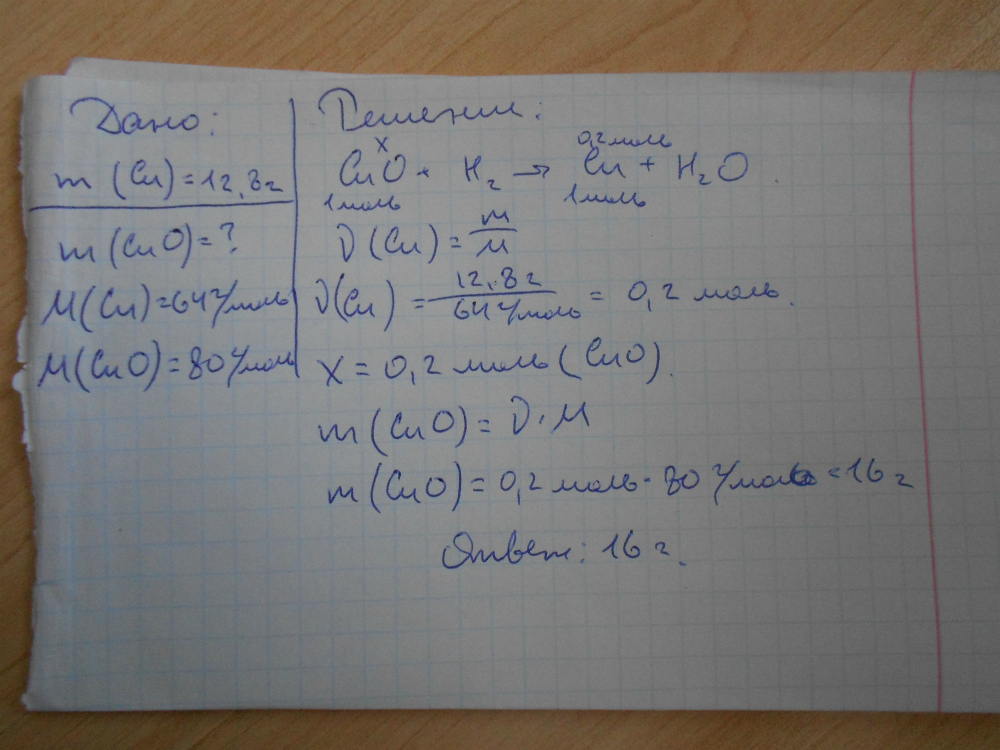 Дано:
m (Cu) = 12,8г
m (CuO) = ?
M(Cu) = 64 г/моль
M(CuO) = 80 г/моль
Решение:
x 0,2 моль
CuO + H2 → Cu + H2O.
1 моль 1 моль
ν (Cu) = m/M
ν(Cu) = 12,8г/64 г/моль = 0,2 моль.
x = 0,2 моль (CuO).
m (CuO) = ν · M
m (CuO) = 0,2 моль · 80 г/моль = 16 г
Ответ: 16 г.